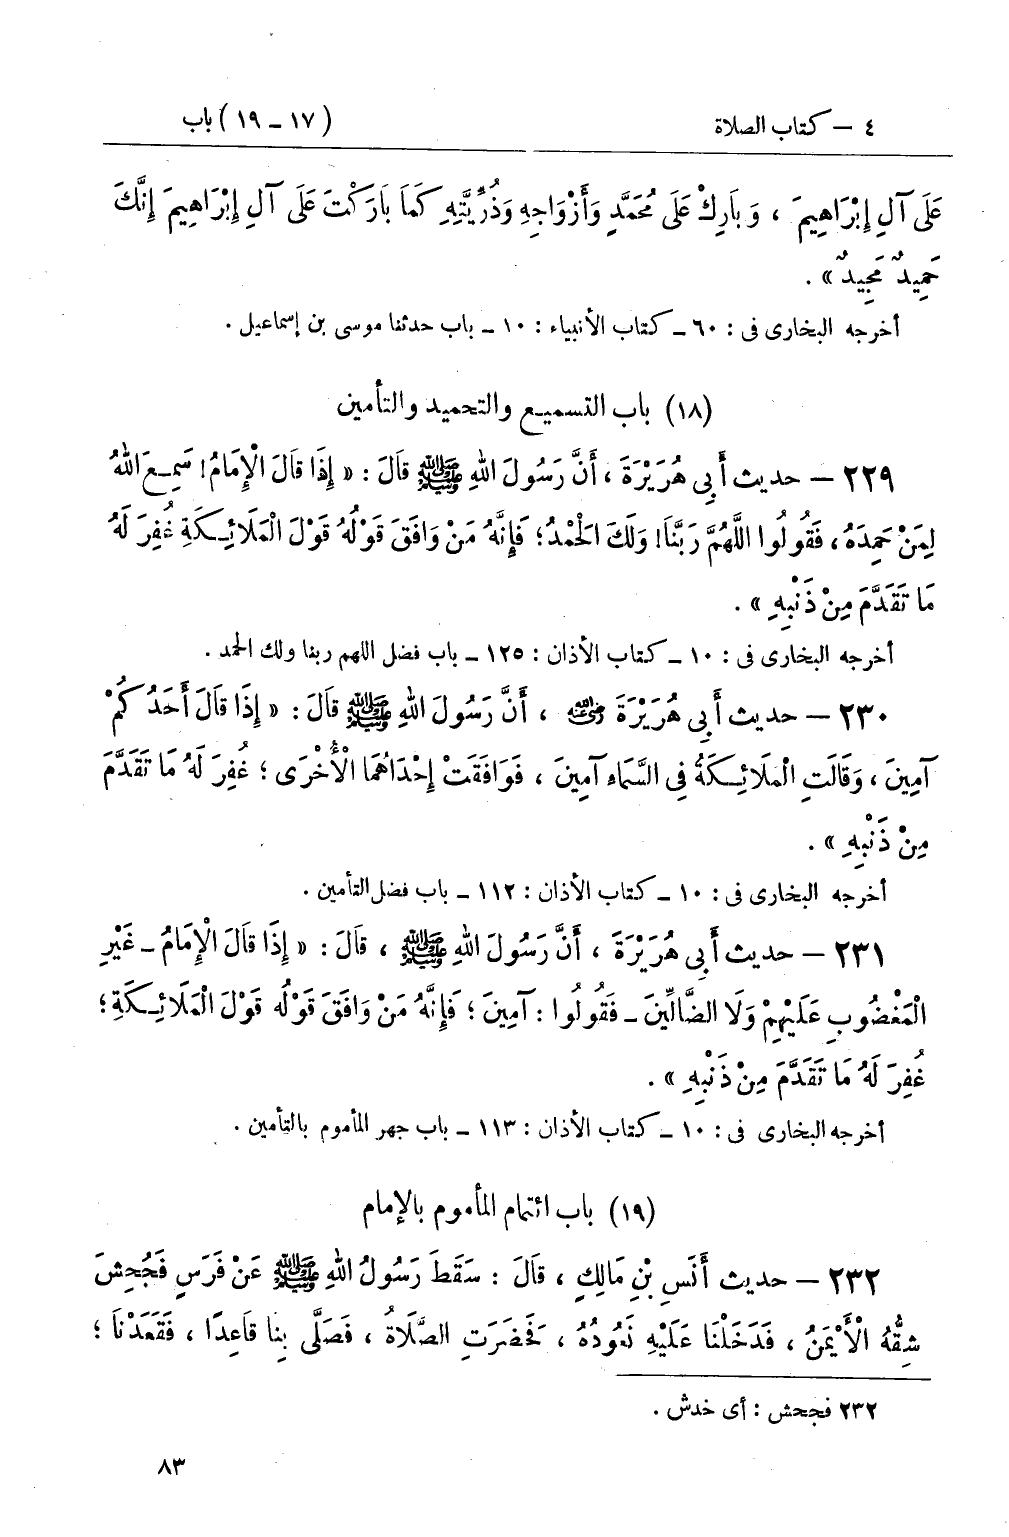 ٤ – كتاب الصلاة (١٧ – ١٩) باب
عَلَى آلِ إِبْرَاهِيمَ ، وَبَارِكْ عَلَى مُحَمَّدٍ وَأَزْوَاجِهِ وَذُرِّيَّتِهِ كَمَا بَارَكْتَ عَلَى آلِ إِبْرَاهِيمَ إِنَّكَ
حَمِيدٌ مَجِيدٌ » .
أخرجه البخارى فى : ٦٠ – كتاب الأنبياء : ١٠ – باب حدثنا موسى بن إسماعيل .
(١٨) باب التسميع والتحميد والتأمين
٢٢٩ – حديث أَبِي هُرَيْرَةَ ، أَنَّ رَسُولَ اللهِ ﷺ قَالَ : « إِذَا قَالَ الْإِمَامُ ! سَمِعَ اللهُ
لِمَنْ حَمِدَهُ ، فَقُولُوا اللَّهُمَّ رَبَّنَا ! وَلَكَ الْحَمْدُ ؛ فَإِنَّهُ مَنْ وَافَقَ قَوْلُهُ قَوْلَ الْمَلَائِكَةِ غُفِرَ لَهُ
مَا تَقَدَّمَ مِنْ ذَنْبِهِ » .
أخرجه البخارى فى : ١٠ – كتاب الأذان : ١٢٥ – باب فضل اللهم ربنا ولك الحمد .
٢٣٠ – حديث أَبِي هُرَيْرَةَ رضي الله عنه ، أَنَّ رَسُولَ اللهِ ﷺ قَالَ : « إِذَا قَالَ أَحَدُكُمْ
آمِينَ ، وَقَالَتِ الْمَلَائِكَةُ فِي السَّمَاءِ آمِينَ ، فَوَافَقَتْ إِحْدَاهُمَا الْأُخْرَى ؛ غُفِرَ لَهُ مَا تَقَدَّمَ
مِنْ ذَنْبِهِ » .
أخرجه البخارى فى : ١٠ – كتاب الأذان : ١١٢ – باب فضل التأمين .
٢٣١ – حديث أَبِي هُرَيْرَةَ ، أَنَّ رَسُولَ اللهِ ﷺ ، قَالَ : « إِذَا قَالَ الْإِمَامُ – غَيْرِ
الْمَغْضُوبِ عَلَيْهِمْ وَلَا الضَّالِّينَ – فَقُولُوا : آمِينَ ؛ فَإِنَّهُ مَنْ وَافَقَ قَوْلُه قَوْلَ الْمَلَائِكَةِ ؛
غُفِرَ لَهُ مَا تَقَدَّمَ مِنْ ذَنْبِهِ » .
أخرجه البخارى فى : ١٠ – كتاب الأذان : ١١٣ – باب جهر المأموم بالتأمين .
(١٩) باب ائتمام المأموم بالإمام
٢٣٢ – حديث أَنَسِ بْنِ مَالِكٍ ، قَالَ : سَقَطَ رَسُولُ اللهِ ﷺ عَنْ فَرَسٍ فَجُحِشَ
شِقُّهُ الْأَيْمَنُ ، فَدَخَلْنَا عَلَيْهِ نَعُودُهُ ، فَحَضَرَتِ الصَّلَاةُ ، فَصَلَّى بِنَا قَاعِدًا ، فَقَعَدْنَا ؛
٢٣٢ فجحش : أى خدش .
٨٣